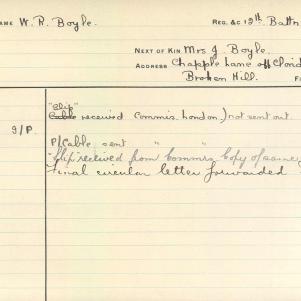 NAME W. R. Boyle. REG. &C 12th Battn
NEXT OF KIN Mrs J. Boyle.
ADDRESS Chapple Lane off Chlorid
Broken Hill. F
"Clip"
Cable received Commis. London,) not sent out.
9/P. P/Cable sent " "
Slip received from Commrs Copy of same
Final circular letter forwarded